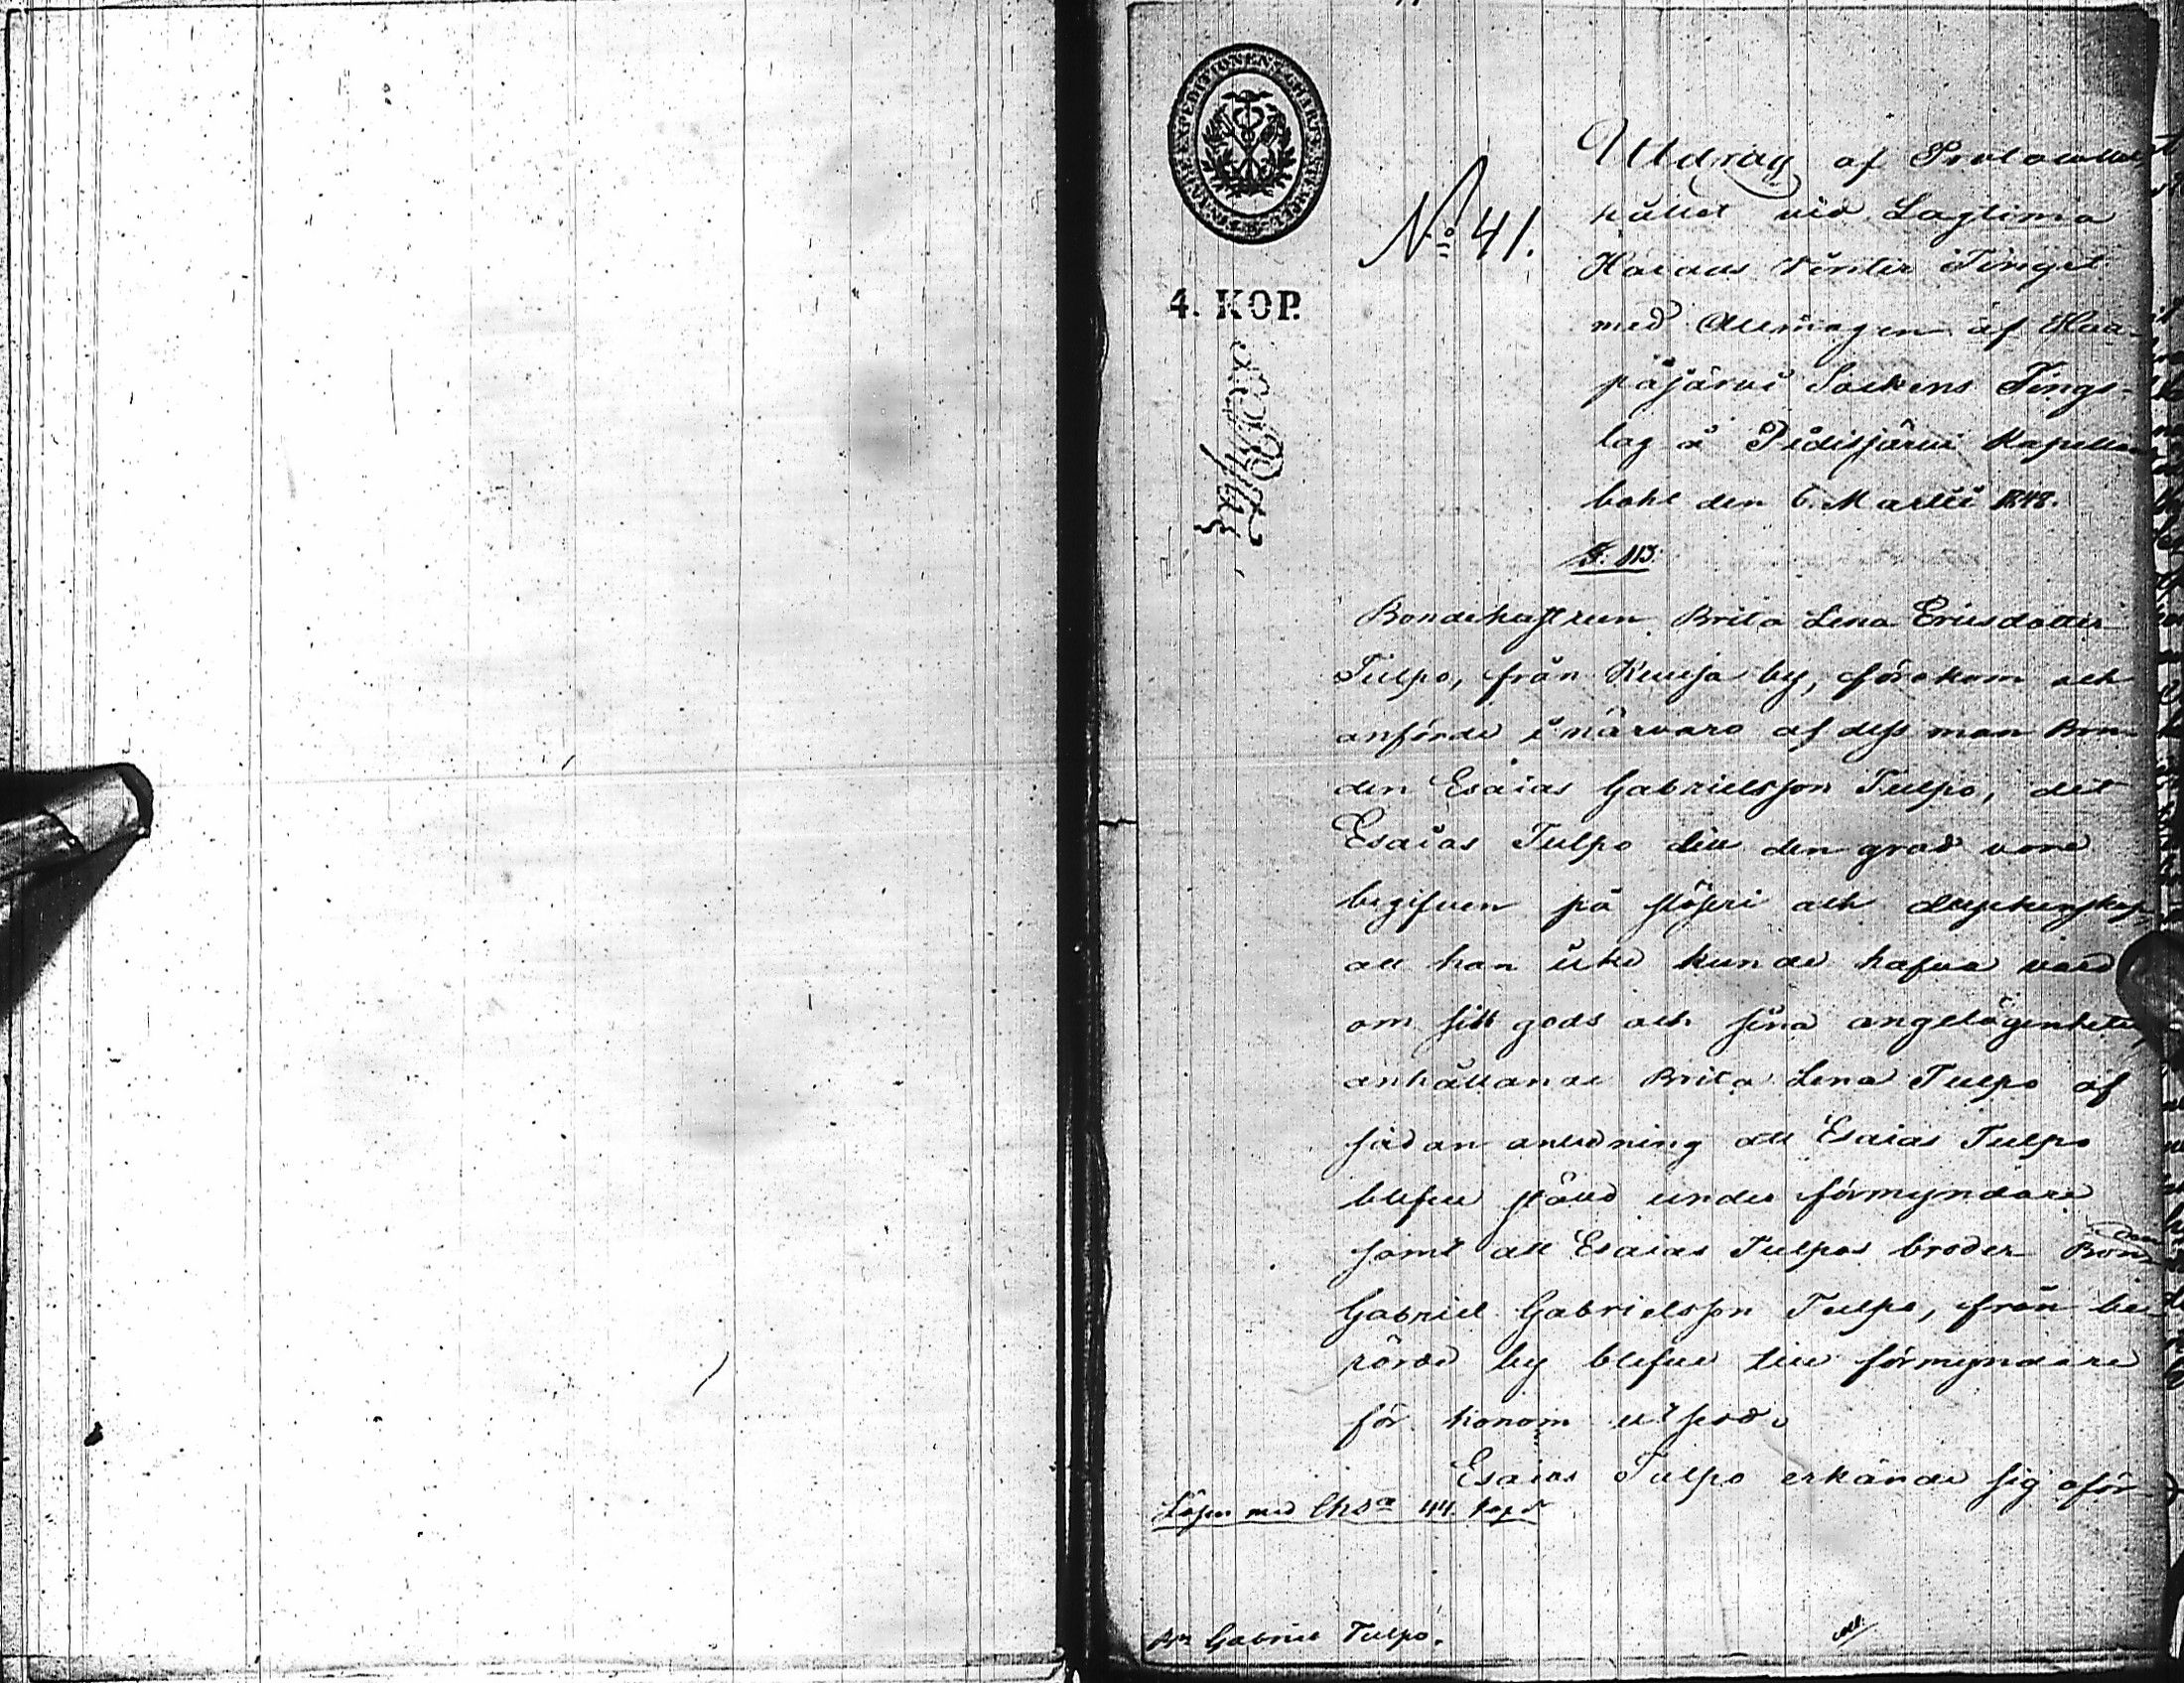 N:o 41.
4. KOP.
Utdrag af Protocollet
hållet vid Lagtima
Härads Vinter Tinget
med Allmogen af Haa-
pajärvi Sockens Tings-
lag å Pidisjärvi Kapellans
bohl den 6. Martii 1848.
§. 113.
Bondehustrun Brita Lena Ericsdotter
Tulpo, från by, förekom och
anförde i närvaro af dess man Bon-
den Esaias Gabrielsson Tulpo, det
Esaias Tulpo till den grad vore
begifven på slöseri och dryckenskap,
att han icke kunde hafva vård
om sitt gods och sina angelägenheter,
anhållande Brita Lena Tulpo af
sådan anledning att Esaias Tulpo
blefve ställd under förmyndare
samt att Esaias Tulpos broder Bonden
Gabriel Gabrielsson Tulpo, från be-
rörde by blefve till förmyndare
för honom utsedd.
Esaias Tulpo erkände sig oför-
Lösen med Ch:s 44. kop. S:r
Gabriel Tulpo.